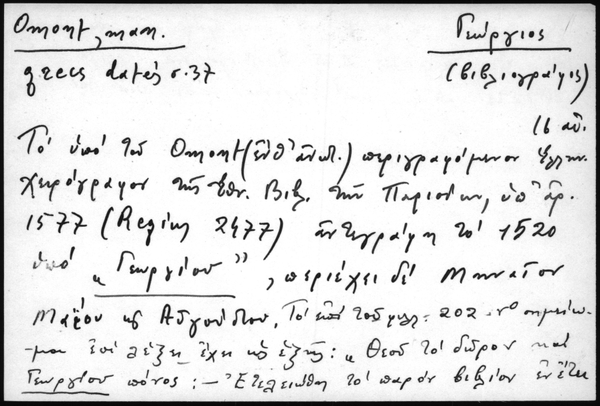 Omont, man. Γεώργιος
grecs datés σ. 37 (βιβλιογράφος)
16 αἰ.
Τὸ ὑπὸ τοῦ Omont (ἔνθ' ἀνωτ.) περιγραφόμενον ἑλλην.
χειρόγραφον τῆς Ἐθν. Βιβλ. τῶν Παρισίων, ὑπ' ἀρ.
1577 (Regius 2477) ἀντεγράφη τὸ 1520
ὑπὸ „Γεωργίου”, περιέχει δὲ Μηναῖον
Μαΐου κ Αὐγούστου. Τὸ ἐπὶ τοῦ φυλλ. 202 νο σημείω-
-μα ἐπὶ λέξει ἔχει ὡς ἑξῆς: „Θεοῦ τὸ δῶρον καὶ
Γεωργίου πόνος: – Ἐτελειώθη τὸ παρὸν βιβλίον ἐν ἔτει